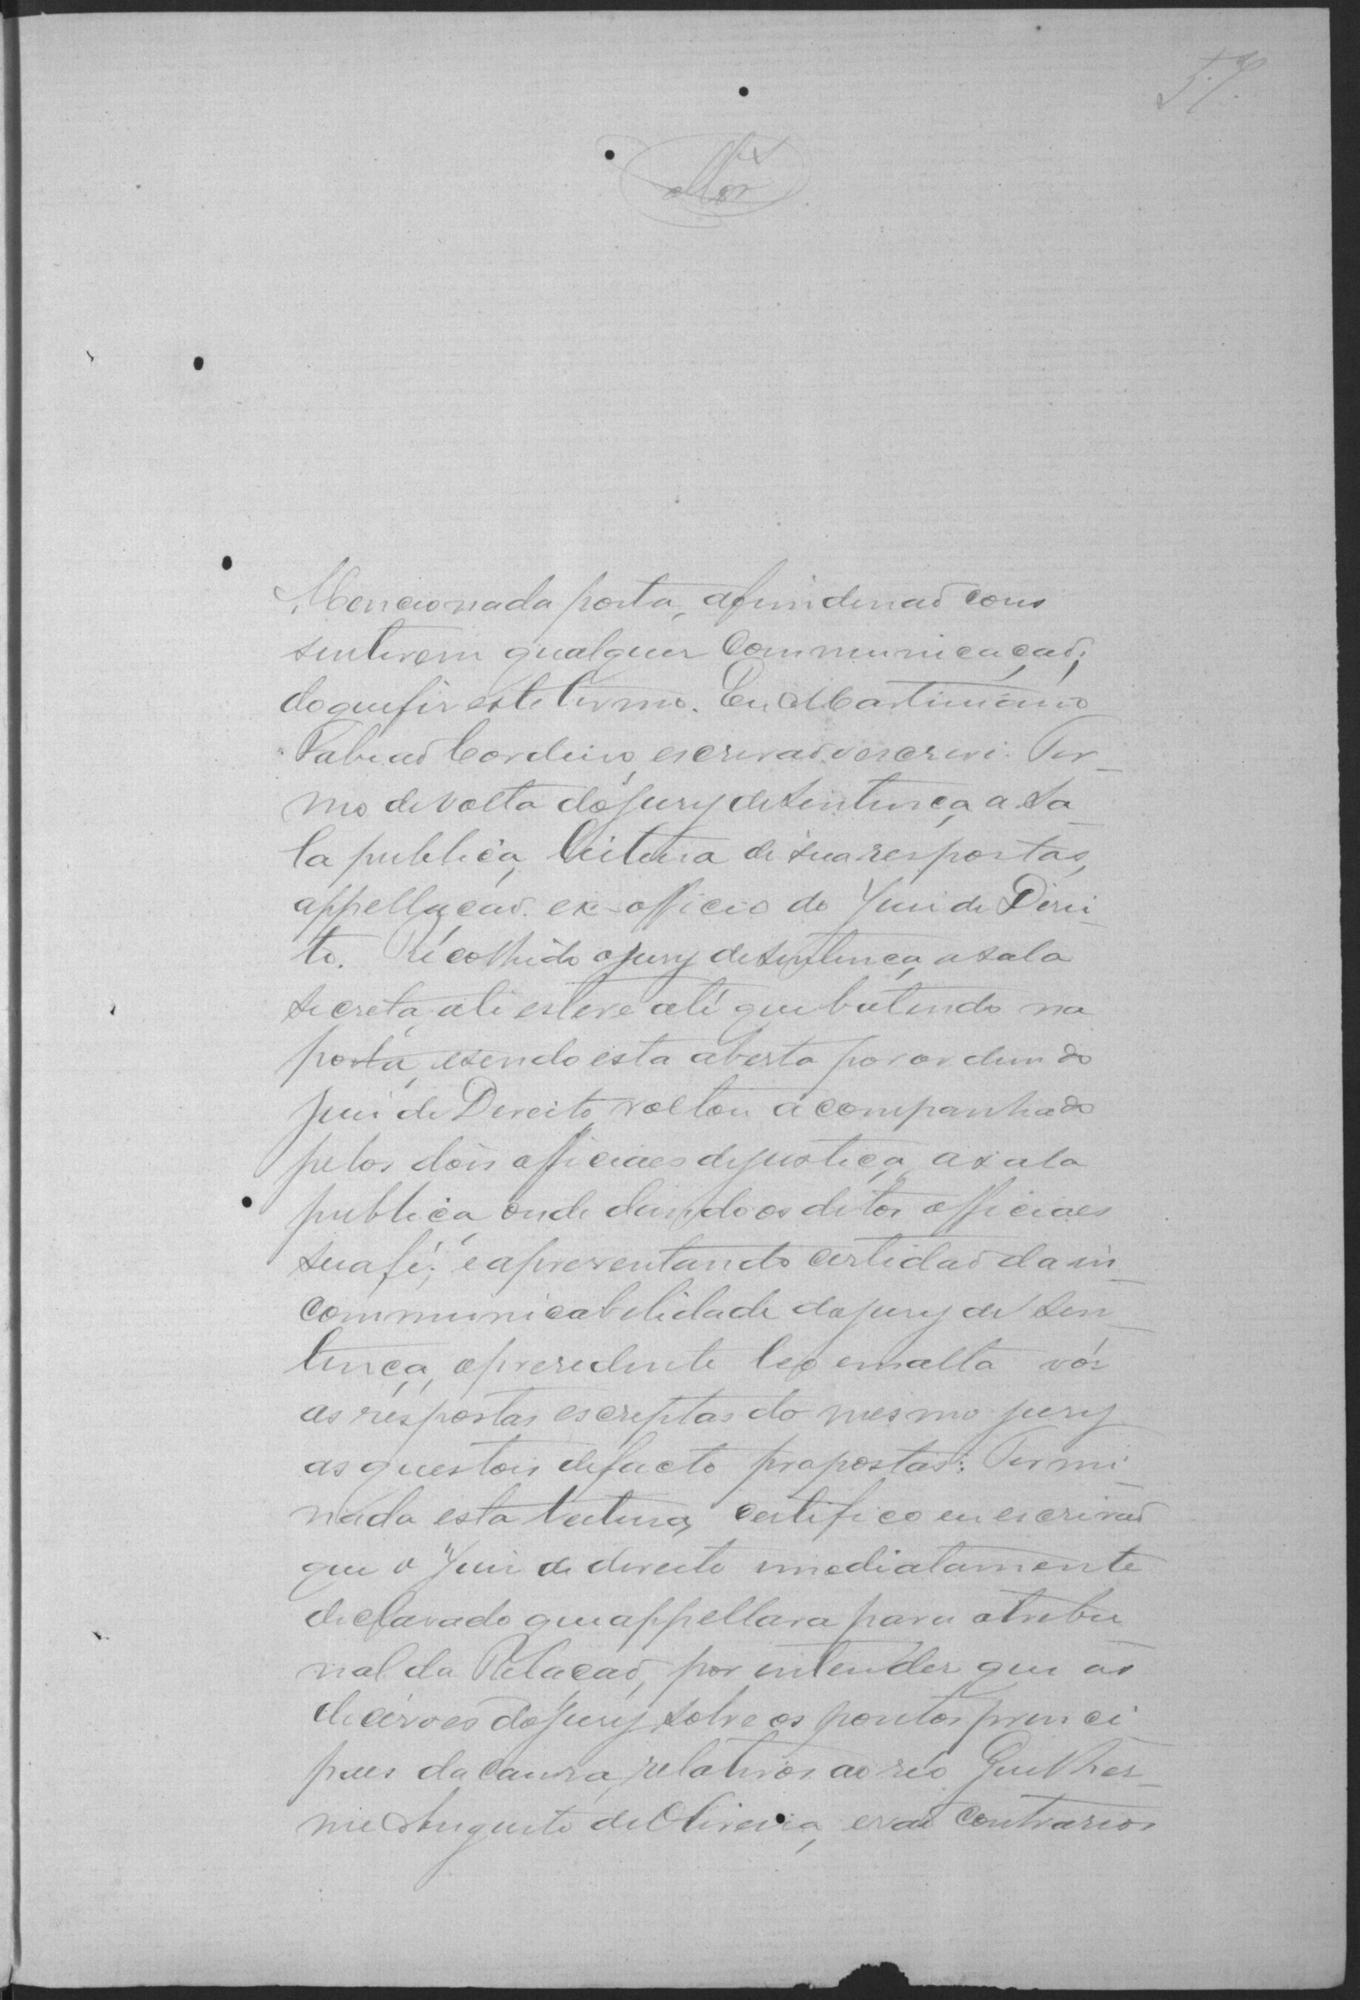 57.
Mencionada porta, afim de naõ cons
sentirem qualquer communicaçaõ;
do que fiz este termo. Eu Martiniano
Fabiaõ Cordeiro, escrivaõ o escrevi. Ter_
mo de volta do jury de sentença a sa_
la publica, leitura de suas respostas,
appellaçaõ ex-officio do Juiz de Direi_
to. Recolhido o jury de sentença a sala
secreta, ali esteve até que batendo na
porta, e sendo esta aberta por ordem do
Juiz de Direito, voltou acompanhado
pelos dois officiaes de justiça, a sala
publica, onde dando os ditos officiaes
sua fé; e apresentando certidaõ da in_
communicabilidade do jury de sen_
tença, o presidente leo em alta vós
as respostas escreptas do mesmo jury
as questois de facto propostas: Termi_
nada esta leitura, certifico eu escrivaõ
que o Juiz de direito immediatamente
declarado que appellava para o tribu
nal da Relaçaõ, por entender que as
decizoes do jury sobre os pontos princi
paes da causa, relativos ao réo Guilher_
me Augusto de Oliveira, eraõ contrarios